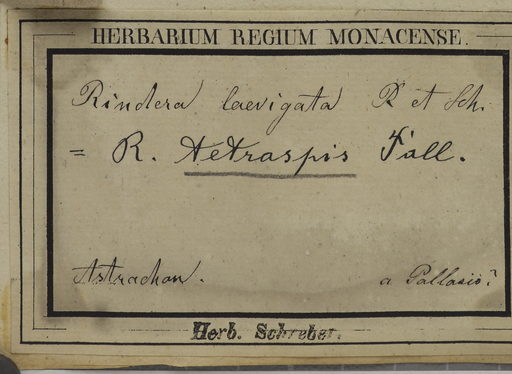 HERBARIUM REGIUM MONACENSE.
Rindera laevigata R et Sch.
= R. tetraspis Pall.
Astrachan. a Pallasio?
Herb. Schreber.